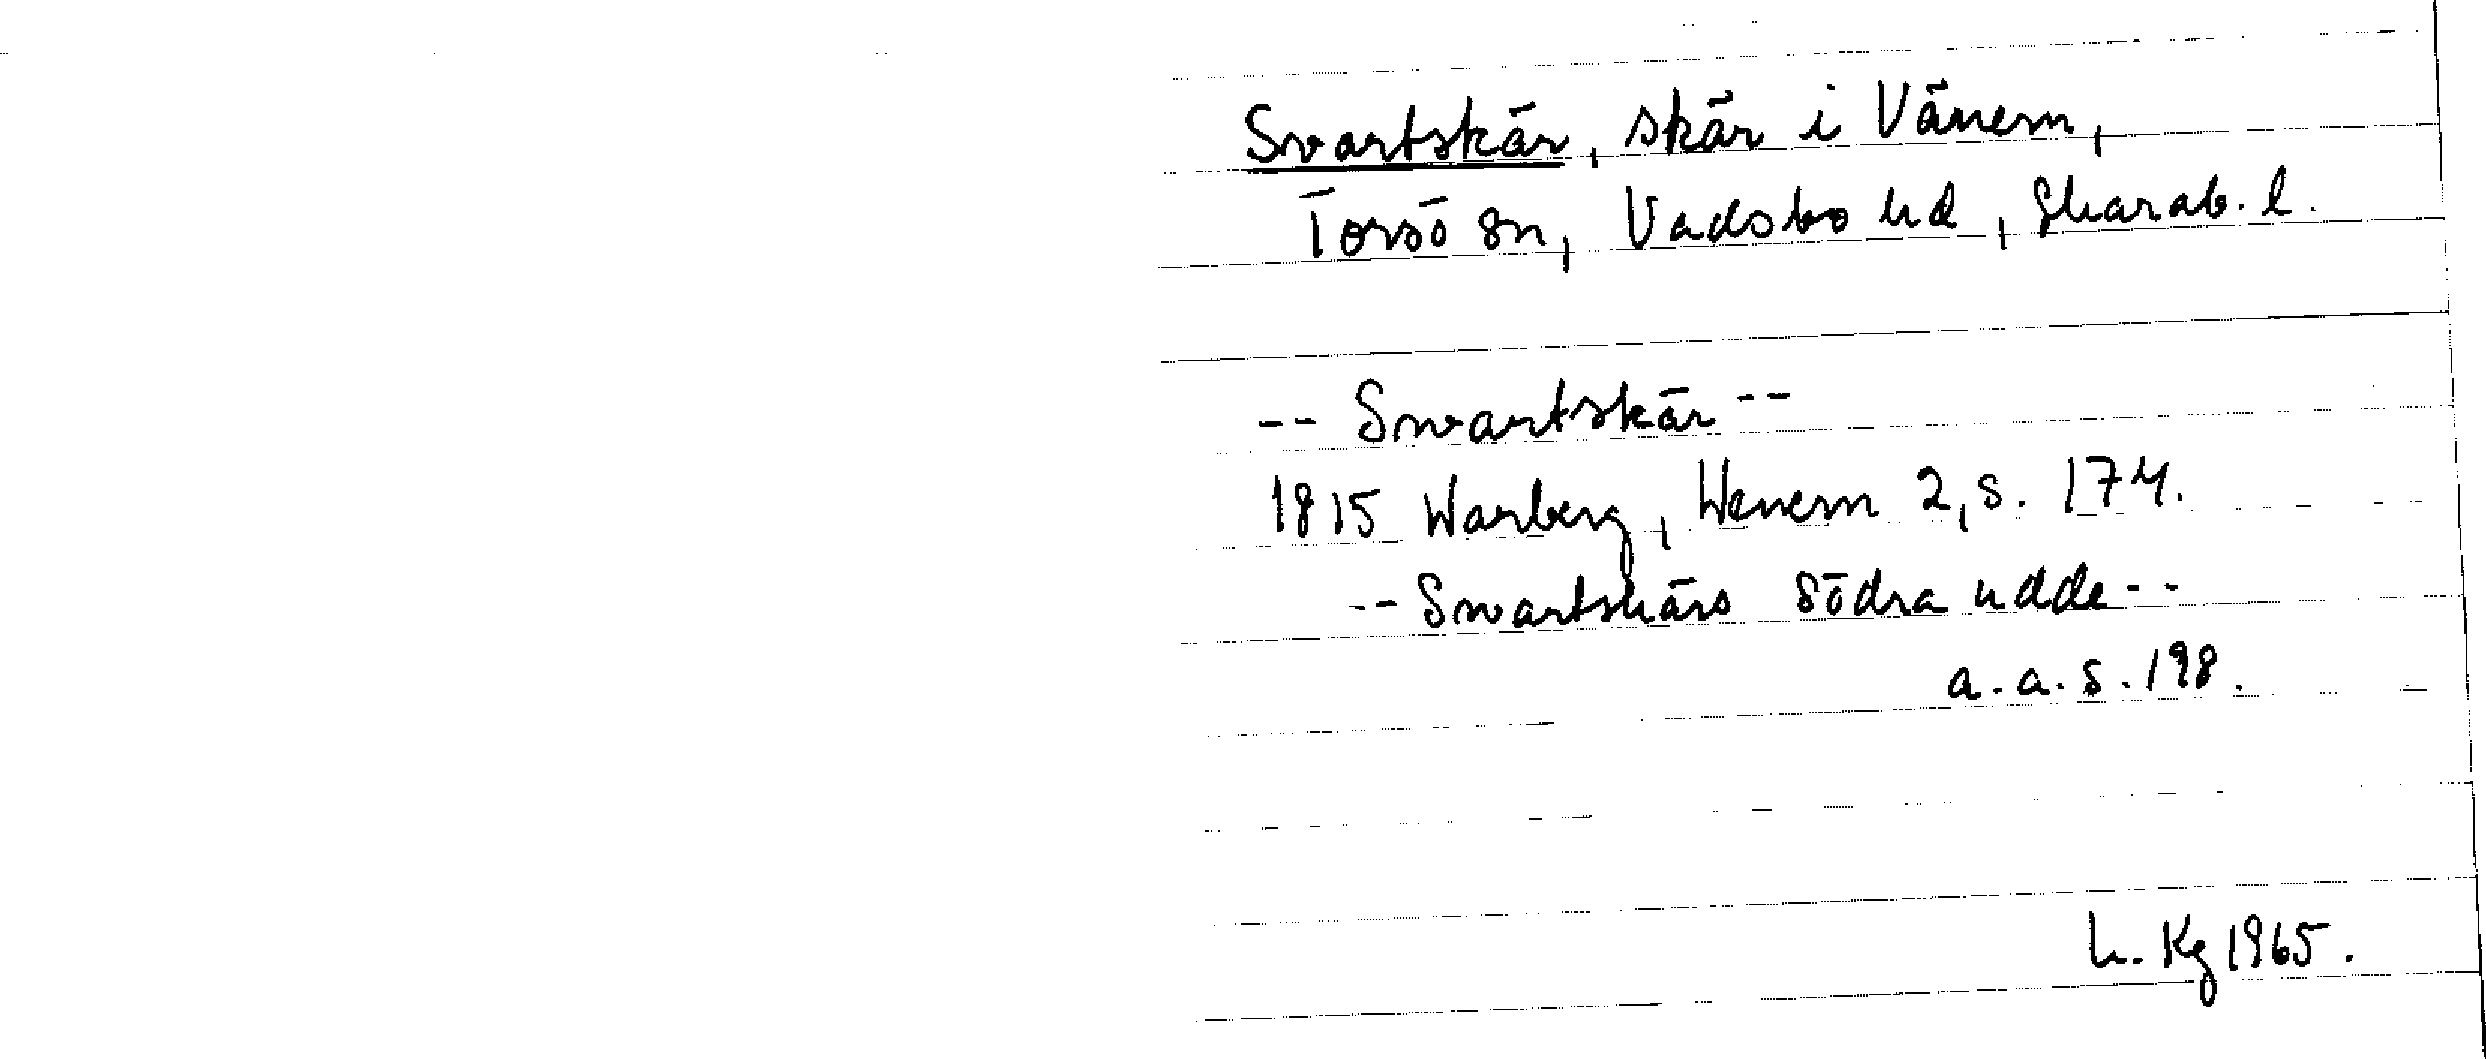 Svartskär, skär i Vänern,
Torsö sn, Vadsbo hd, Skarab. l.
-- Swartskär --
1815 Warberg, Wenern 2, s. 174.
-- Swartskärs södra udde --
a. a. s. 198.
L. Kg 1965.